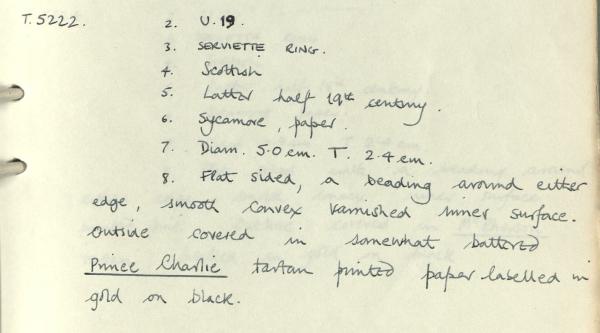 T.5222. 2. U.19.
3. SERVIETTE RING.
4. Scottish
5. Latter half 19th century.
6. Sycamore, paper.
7. Diam. 5.0 cm. T. 2.4 cm.
8. Flat sided, a beading around either
edge, smooth convex varnished inner surface.
Outside covered in somewhat battered
Prince Charlie tartan printed paper labelled in
gold on black.